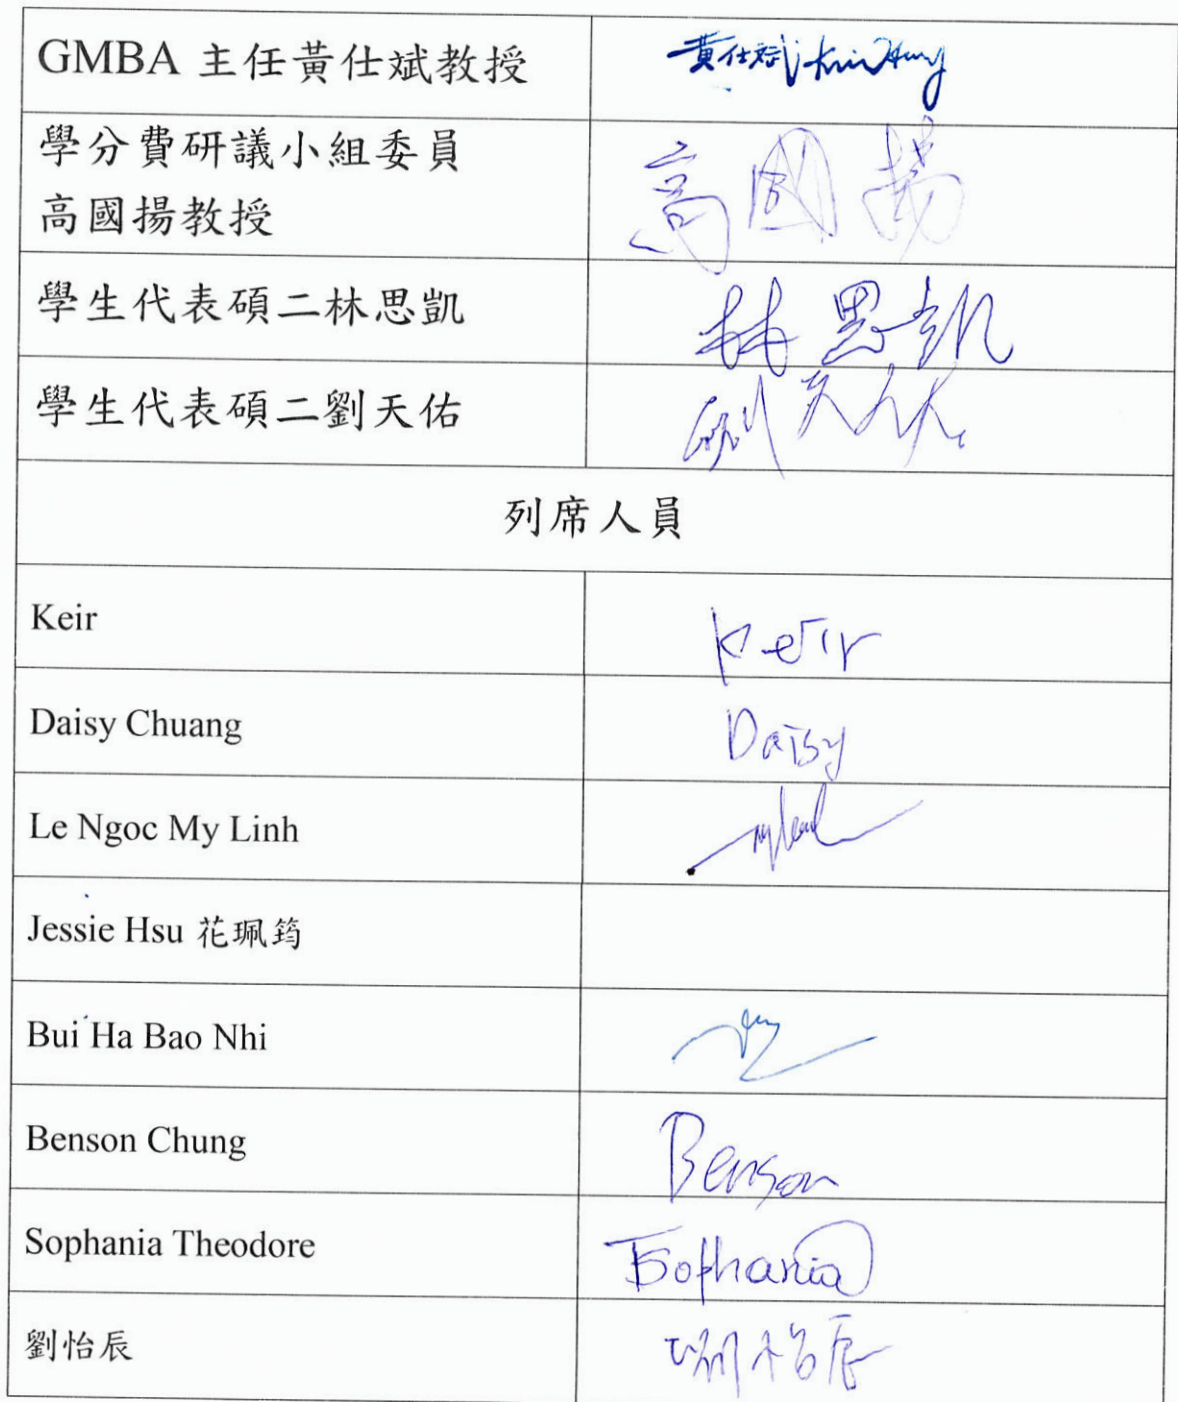 GMBA 主任黃仕斌教授 黃仕斌
學分費研議小組委員
高國揚教授 高國揚
學生代表碩二林思凱 林思凱
學生代表碩二劉天佑 劉天佑
列席人員
Keir Keir
Daisy Chuang Daisy
Le Ngoc My Linh
Jessie Hsu 花珮筠
Bui Ha Bao Nhi
Benson Chung Benson
Sophania Theodore Sophania
劉怡辰 劉怡辰